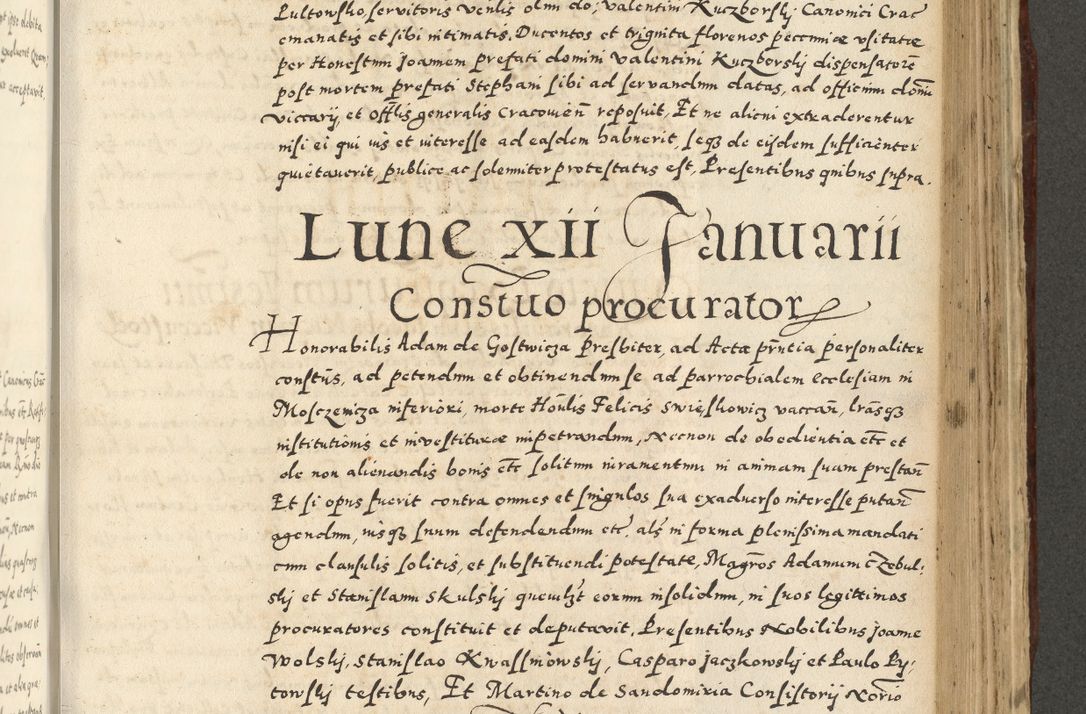 Pultowsko, servitoris venlis olim do: Valentini Kuczborslij Canonici Crac
emanatis et sibi intimatis, Ducentos et trignita florenos peccuniæ usitatæ
per Honestum Joannem prefati domini Valentini Kuczborslij dispensatorẽ
post mortem prefati Stephani sibi ad servandum datas, ad officium domi
viccarij, et offlis generalis Cracovieñ reposuit, Et ne alicui extraderentur
nisi ei qui ius et interesse ad easdem habuerit, seqz de eisdem sufficienter
quietaverit, publice ac solemniter protestatus est, Presentibus quibus supra.
Lune xii Januarii
Constuo procurator
Honorabilis Adam de Gostwicza presbiter, ad Acta pñtia personaliter
constũs, ad petendum et obtinendum se ad parrochialem ecclesiam in
Mosczenicza inferiori, morte Honlis Felicis Swieskowicz vaccañ, lrasqz
institutionis et investituræ impetrandum, Necnon de obedientia etc et
de non alienandis bonis etc solitum iuramentum in animam suam prestañ
Et si opus fuerit contra omnes et singulos sua exadverso interesse putañ
agendum, iusqz suum defendendum etc, als in forma plenissima mandati
cum clausulis solitis, et substituendi potestate, Magros Adamum Czebul:
slij et Stanislaum Skulslij quemlzt eorum insolidum, in suos legittimos
procuratores constituit et deputavit, Presentibus Nobilibus Joanne
Wolslij, Stanislao Kwassniowslij, Casparo Jaczkowslij et Paulo Py:
towslij testibus, Et Martino de Sandomiria Consistorij Norio